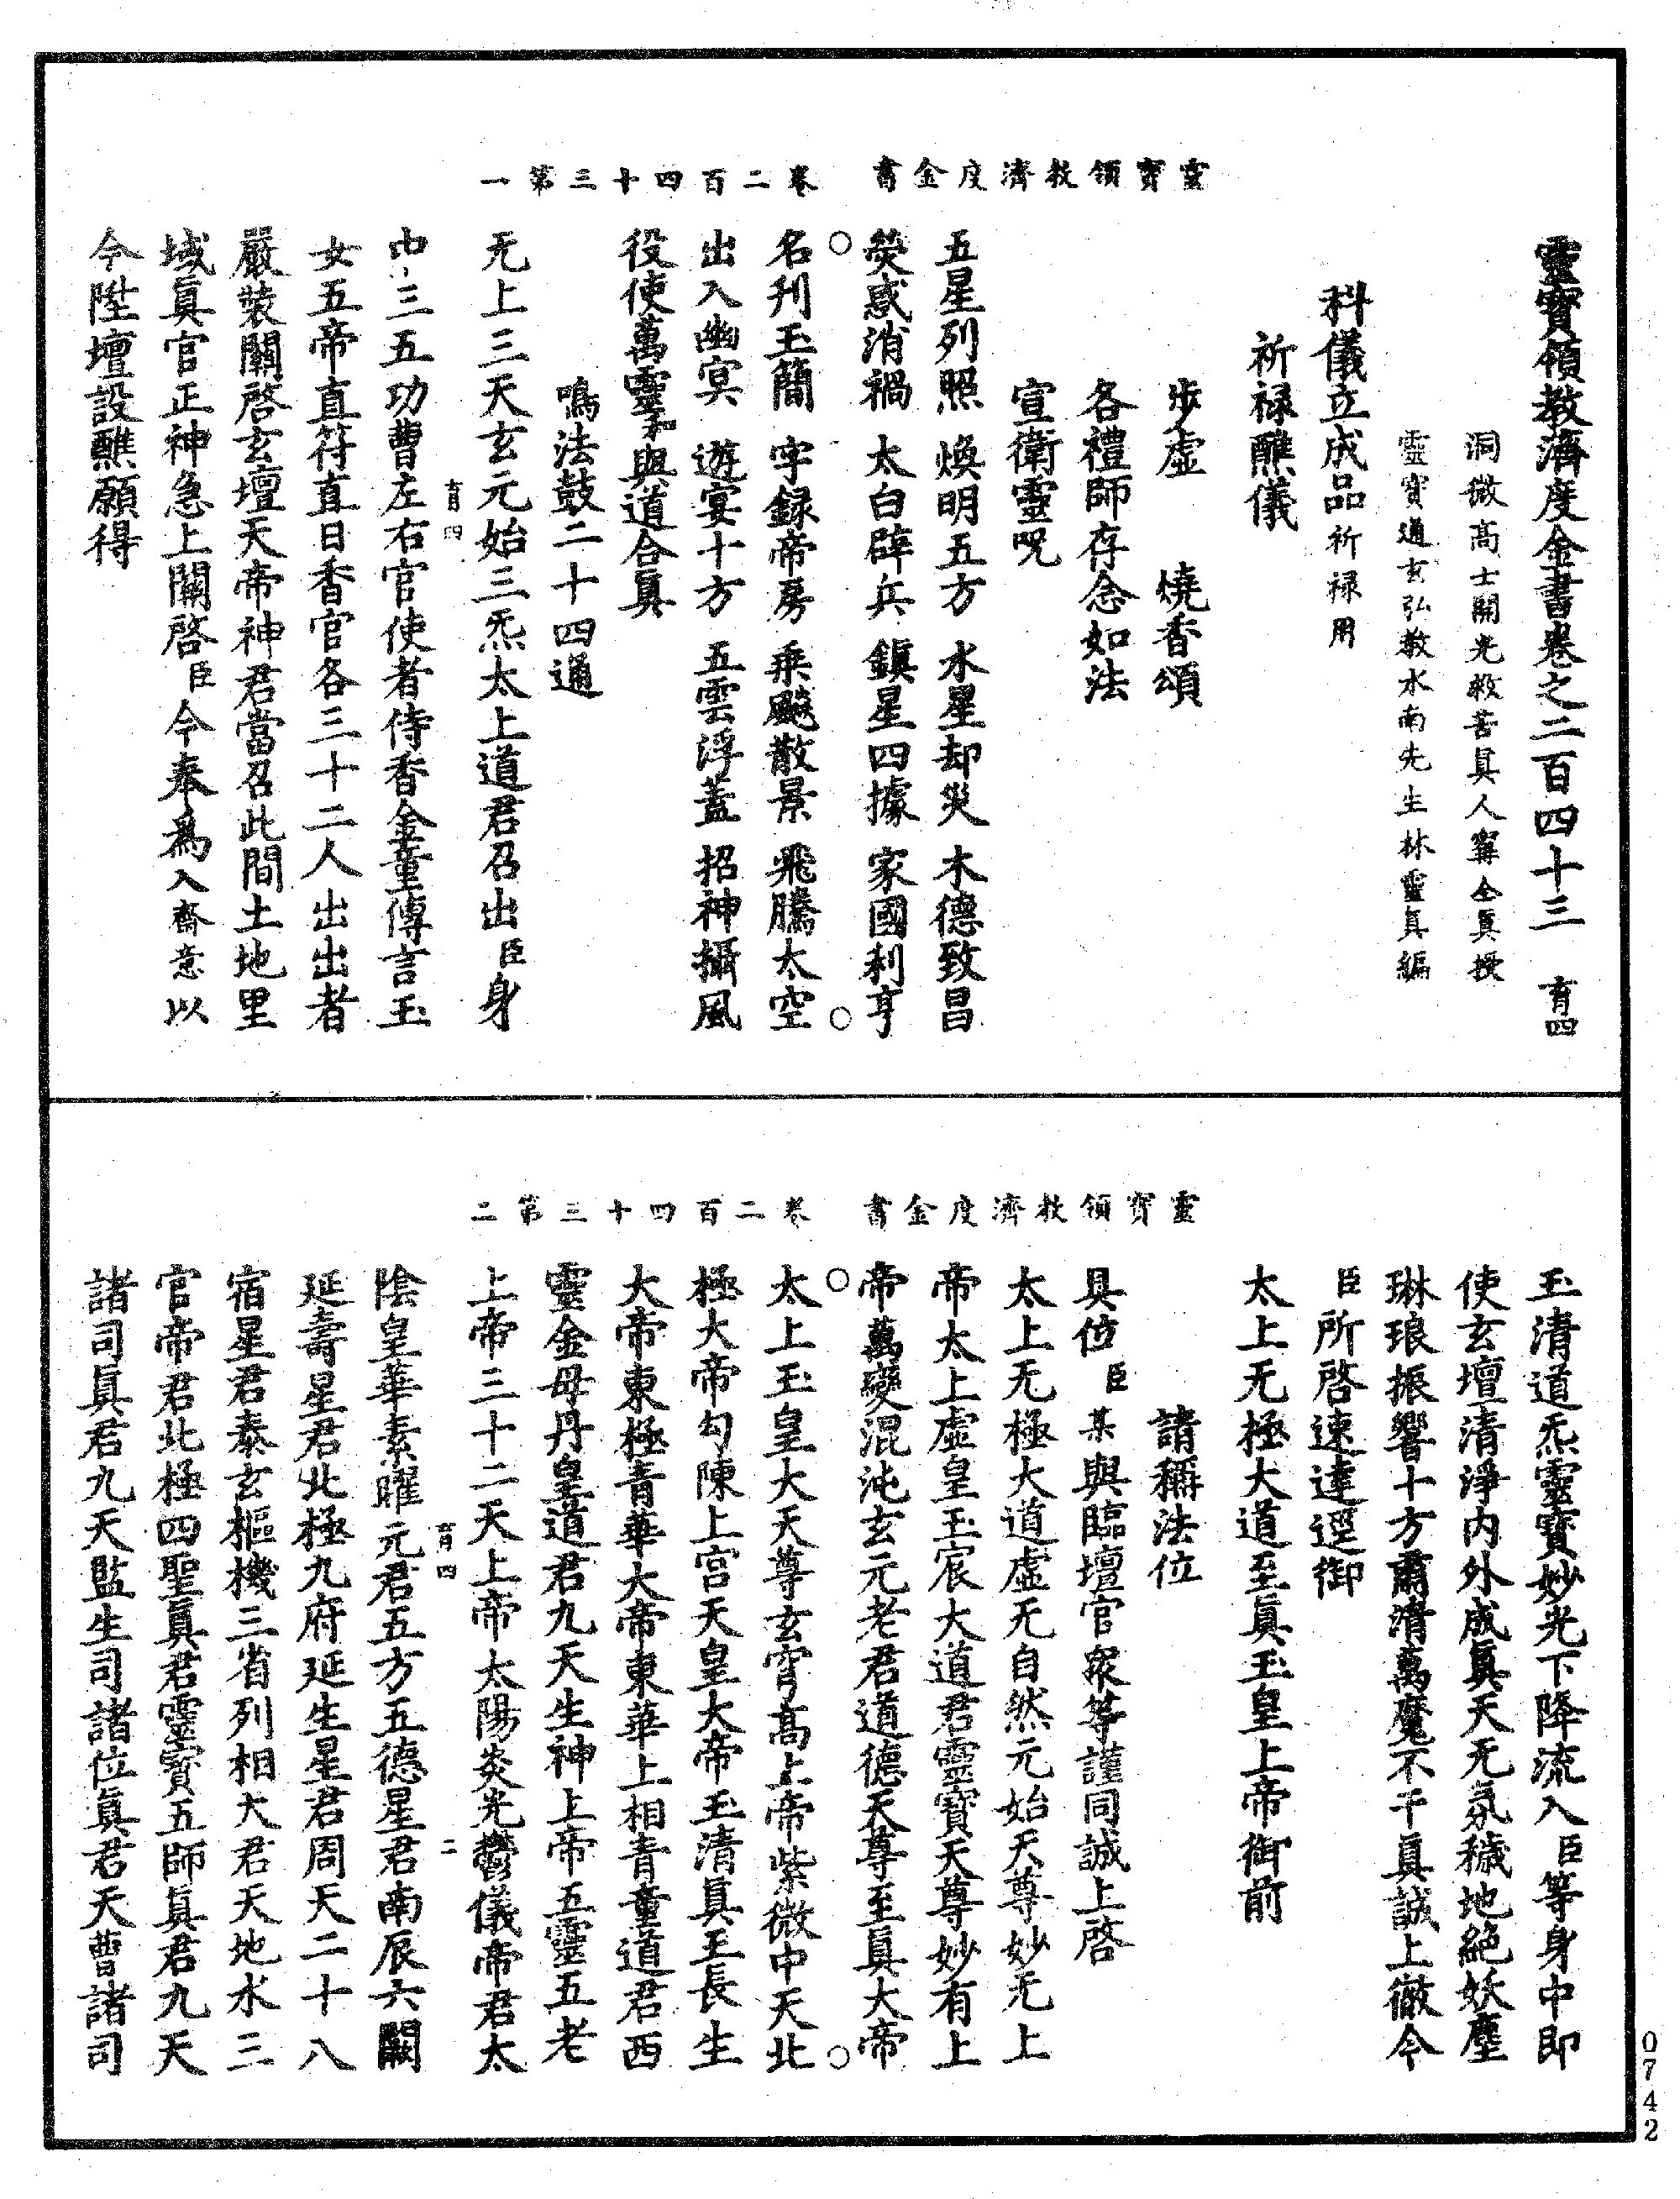 靈寶領教濟度金書卷之二百四十三　育四
洞微高士開光救苦真人甯全真授
靈寶通玄弘教水南先生林靈真編
科儀立成品祈祿用
祈祿醮儀
步虛　燒香頌
各禮師存念如法
宣衛靈呪
五星列照　煥明五方　水星却災　木德致昌
熒惑消禍　太白辟兵　鎮星四據　家國利亨
名刋玉簡　字録帝房　乘飈散景　飛騰太空
出入幽冥　遊宴十方　五雲浮蓋　招神攝風
役使萬靈　與道合眞
鳴法鼓二十四通
无上三天玄元始三炁太上道君召出臣身
中三五功曹左右官使者侍香金童傳言玉
女五帝直符直日香官各三十二人出出者
嚴裝關啓玄壇天帝神君當召此間土地里
域眞官正神急上關啓臣今奉爲入齋意以
今陞壇設醮願得
靈寶領教濟度金書　卷二百四十三第一
育四
玉清道炁靈寶妙光下降流入臣等身中即
使玄壇清淨内外成眞天无氛穢地絕妖塵
琳琅振響十方肅清萬魔不干眞誠上徹令
臣所啓速達逕御
太上无極大道至眞玉皇上帝御前
請稱法位
具位臣某與臨壇官衆等謹同誠上啓
太上无極大道虛无自然元始天尊妙无上
帝太上虛皇玉宸大道君靈寶天尊妙有上
帝萬變混沌玄元老君道德天尊至眞大帝
太上玉皇大天尊玄穹高上帝紫微中天北
極大帝勾陳上宮天皇大帝玉清眞王長生
大帝東極青華大帝東華上相青童道君西
靈金母丹皇道君九天生神上帝五靈五老
上帝三十二天上帝太陽炎光鬱儀帝君太
陰皇華素曜元君五方五德星君南辰六闕
延壽星君北極九府延生星君周天二十八
宿星君泰玄樞機三省列相大君天地水三
官帝君北極四聖眞君靈寶五師眞君九天
諸司眞君九天監生司諸位眞君天曹諸司
靈寶領教濟度金書　卷二百四十三第二
育四　二
0742